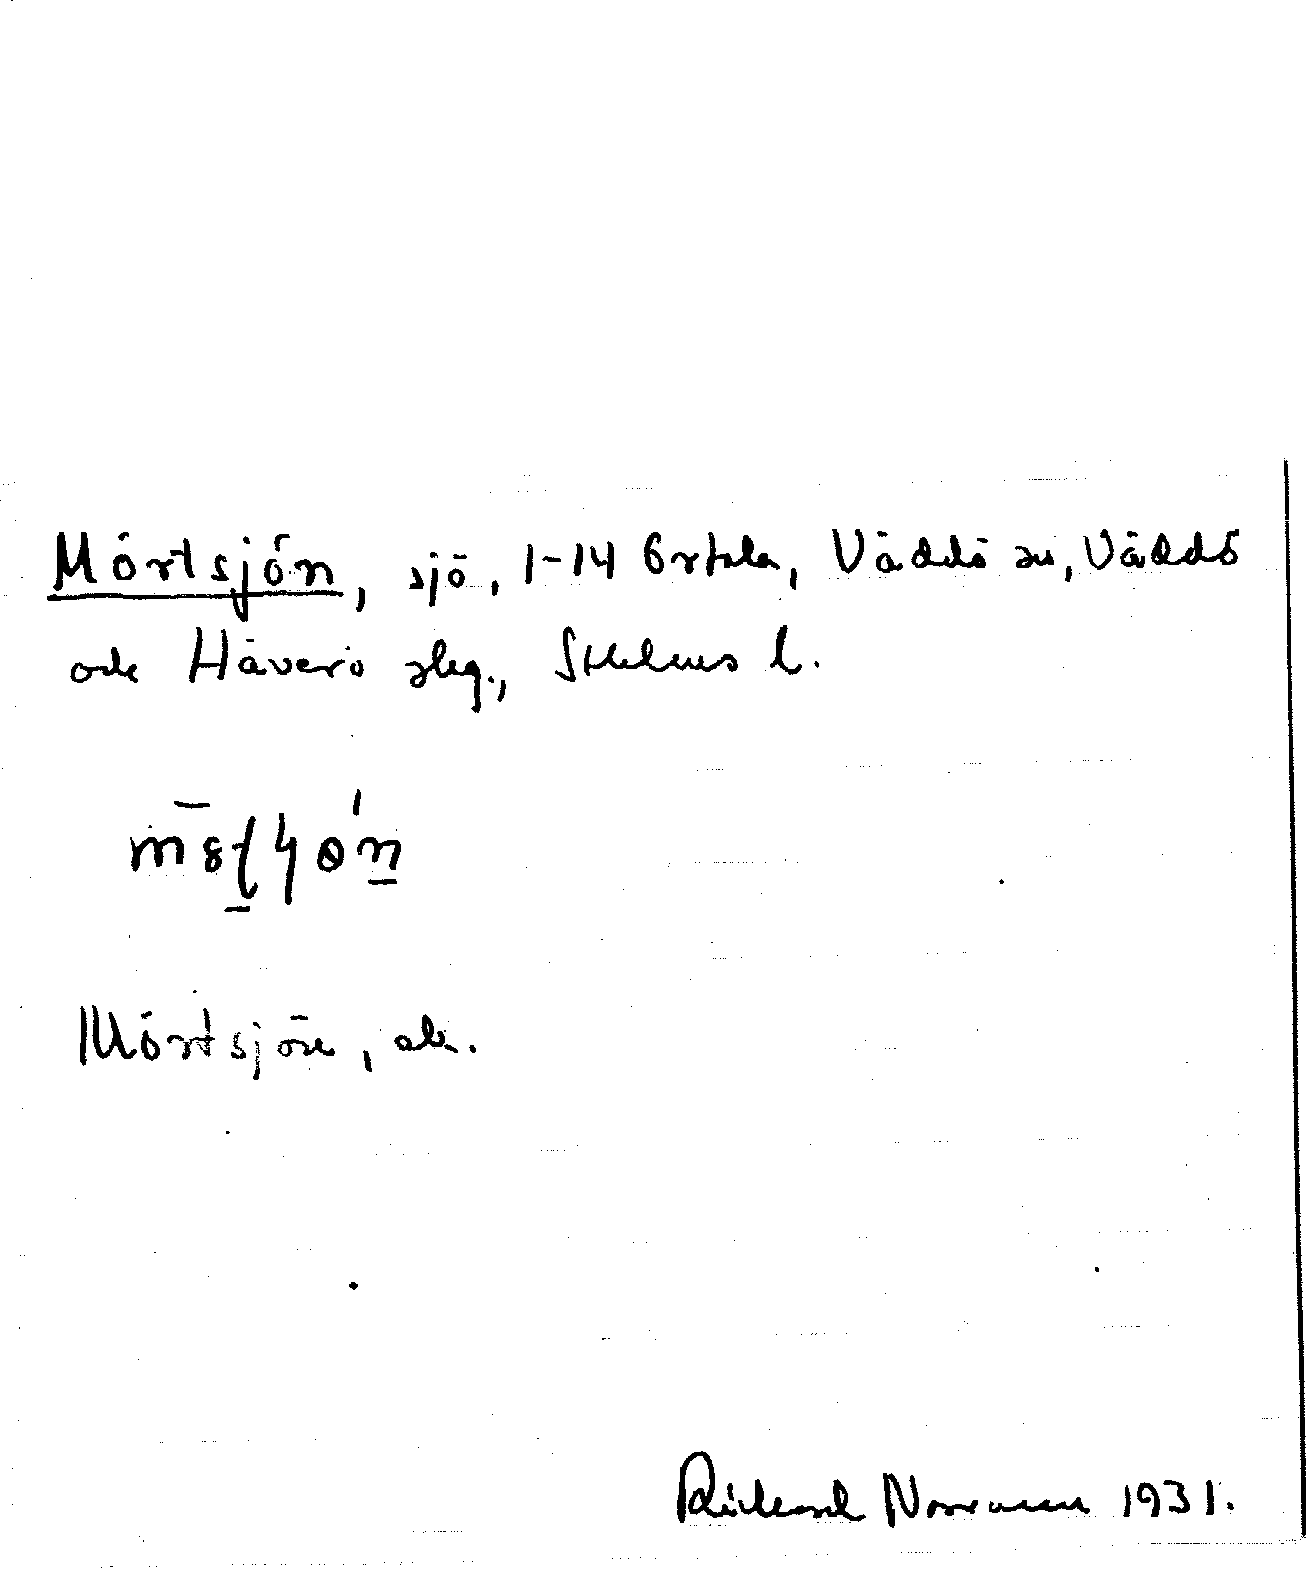 Mörtsjön, sjö, 1-14 Ortala, Väddö sn, Väddö
och Häverö skg., Sthlms l.
Mörtsjön, ek.
Rickard Norrman 1931.